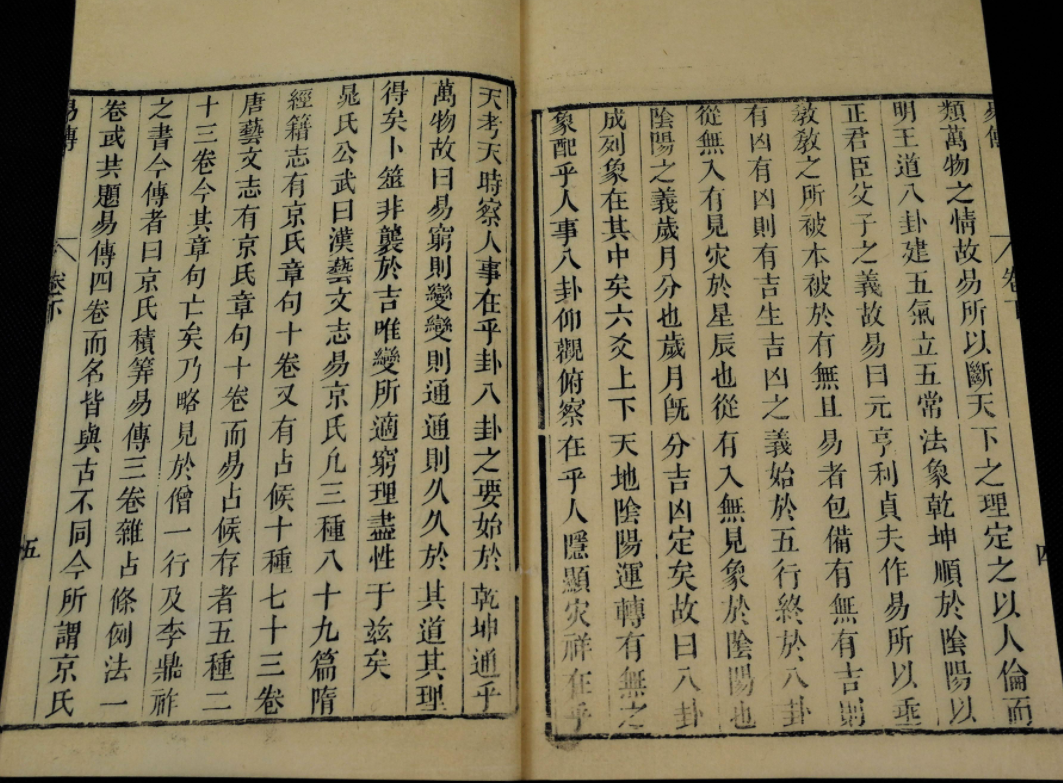 易傳
卷下
四
類萬物之情故易所以斷天下之理定之以人倫而
明王道八卦建五氣立五常法象乾坤順於陰陽以
正君臣父子之義故易曰元亨利貞夫作易所以垂
敎敎之所被本被於有無且易者包備有無有吉則
有凶有凶則有吉生吉凶之義始於五行終於八卦
從無入有見灾於星辰也從有入無見象於陰陽也
陰陽之義歲月分也歲月旣分吉凶定矣故曰八卦
成列象在其中矣六爻上下天地陰陽運轉有無之
象配乎人事八卦仰觀俯察在乎人隱顯灾祥在乎
天考天時察人事在乎卦八卦之要始於乾坤通乎
萬物故曰易窮則變變則通通則久久於其道其理
得矣卜筮非襲於吉唯變所適窮理盡性于兹矣
晁氏公武曰漢藝文志易京氏凢三種八十九篇隋
經籍志有京氏章句十卷又有占候十種七十三卷
唐藝文志有京氏章句十卷而易占候存者五種二
十三卷今其章句亡矣乃略見於僧一行及李鼎祚
之書今傳者曰京氏積筭易傳三卷雜占條例法一
卷或共題易傳四卷而名皆與古不同今所謂京氏
易傳
卷下
五